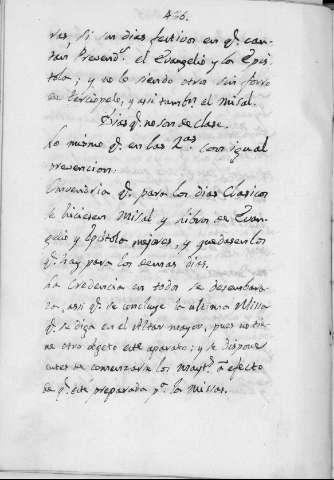 436.
ras, si son dias festivos en q.e can-
tan Prevend.s el Evangelio y los Epis-
tola; y no lo siendo otros sin forro
de terciopelo, y asi tambn. el Misal.
Dias q.e no son de Clase.
Lo mismo q.e en las 2.as con igual
prevencion.
Convendria q.e para los dias Clasicos
se hiciesen Misal y Libros de Evan-
gelio y Epistola mejores, y quedasen los
q.e hay para los demas dias.
La Credencia en todos se desembara-
za, asi q.e se concluye la ultima Missa
q.e se diga en el Altar mayor, pues no tie-
ne otro objeto este aparato; y se dispone
antes de comenzarse los mayt.s a efecto
de q.e esté preparada p.a las Missas.